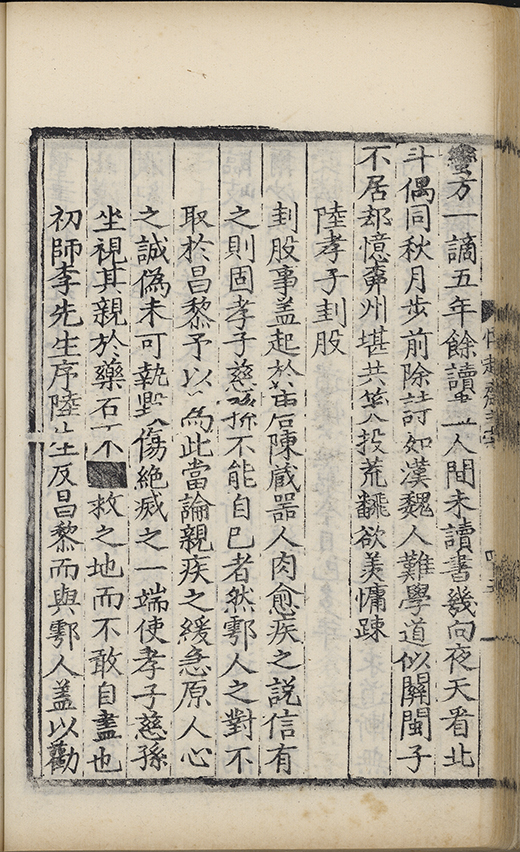 蠻方一謫五年餘讀 人間未讀書幾向夜天看北
斗偶同秋月步前除詩如漢魏人難學道似關閩子
不居却憶 州堪共 投荒翻欲羨慵疎
陸孝子刲股
刲股事盖起於唐陳蔵器人肉愈疾之說信有
之則固孝子慈孫不能自已者然鄠人之對不
取於昌黎予以爲此當論親疾之緩急原人心
之誠僞未可執毀傷絶㓕之一端使孝子慈孫
坐視其親於藥石不 救之地而不敢自盡也
初師李先生序陸生反昌黎而與鄠人盖以勸